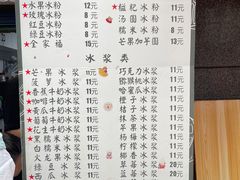 ★水果冰粉 12元
★玫瑰冰粉 8元
★红豆冰粉 8元
★绿豆冰粉 8元
★全家福
枇杷冰粉 11元
汤圆冰粉 11元
糯米冰粉 11元
芒果加芋圆 13元
冰浆类
芒果冰浆 11元
菠萝冰浆
香蕉牛奶冰浆
★西瓜牛奶冰浆
★葡萄牛奶冰浆
★花生牛奶冰浆
★黑糯米冰浆
白糯米冰浆 11元
火龙果冰浆 11元
绿豆冰浆 11元
巧克力冰浆 11元
猕猴桃冰浆 11元
哈蜜瓜冰浆 11元
橙子冰浆 11元
桔子冰浆 11元
抹茶冰浆 11元
草莓冰浆 11元
柠檬冰浆 11元
椰香冰浆 11元
蓝莓冰浆 20元
榴莲冰浆 20元